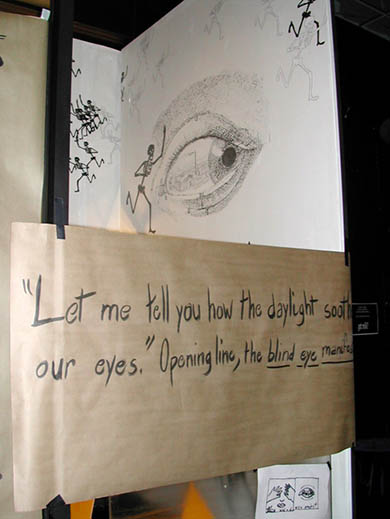 "Let me tell you how the daylight sooth
our eyes." Opening line, the blind eye manifes